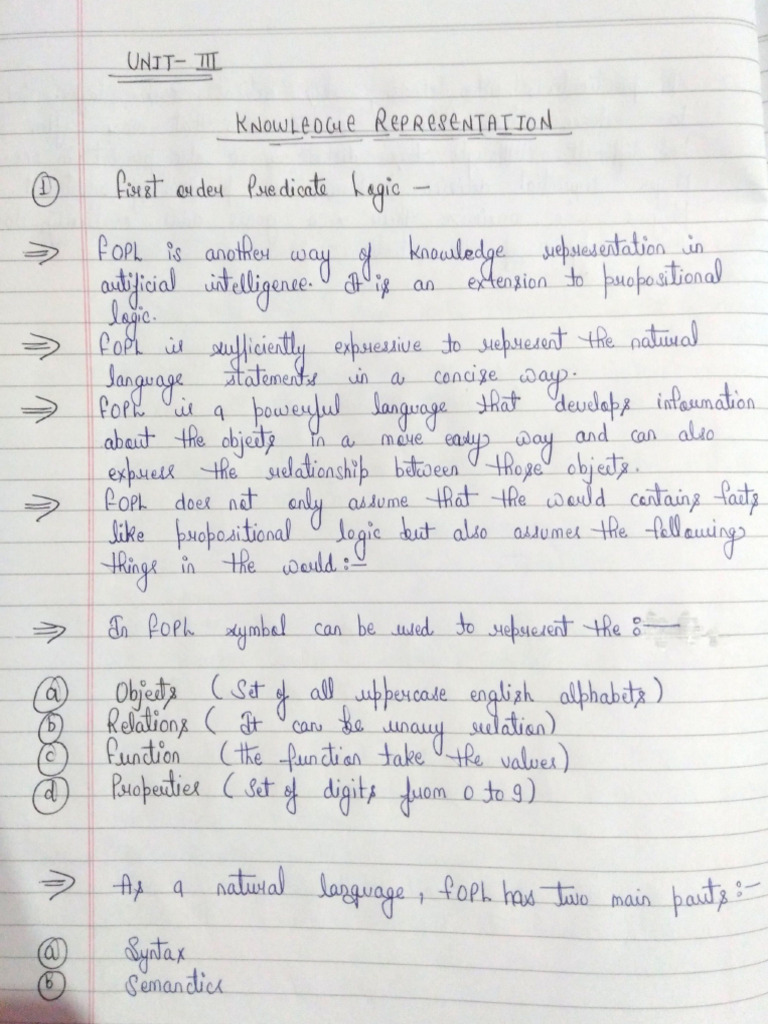 UNIT- III
KNOWLEDGE REPRESENTATION
① First order Predicate Logic —
⇒ FOPL is another way of knowledge representation in
artificial intelligence. It is an extension to propositional
logic.
⇒ FOPL is sufficiently expressive to represent the natural
language statements in a concise way.
⇒ FOPL is a powerful language that develops information
about the objects in a more easy way and can also
express the relationship between those objects.
⇒ FOPL does not only assume that the world contains facts
like propositional logic but also assumes the following
things in the world :—
⇒ In FOPL symbol can be used to represent the :—
ⓐ Objects ( Set of all uppercase english alphabets )
ⓑ Relations ( It can be unary relation)
ⓒ Function (the function take the values)
ⓓ Properties ( Set of digits from 0 to 9 )
⇒ As a natural language, FOPL has two main parts :—
ⓐ Syntax
ⓑ Semantics